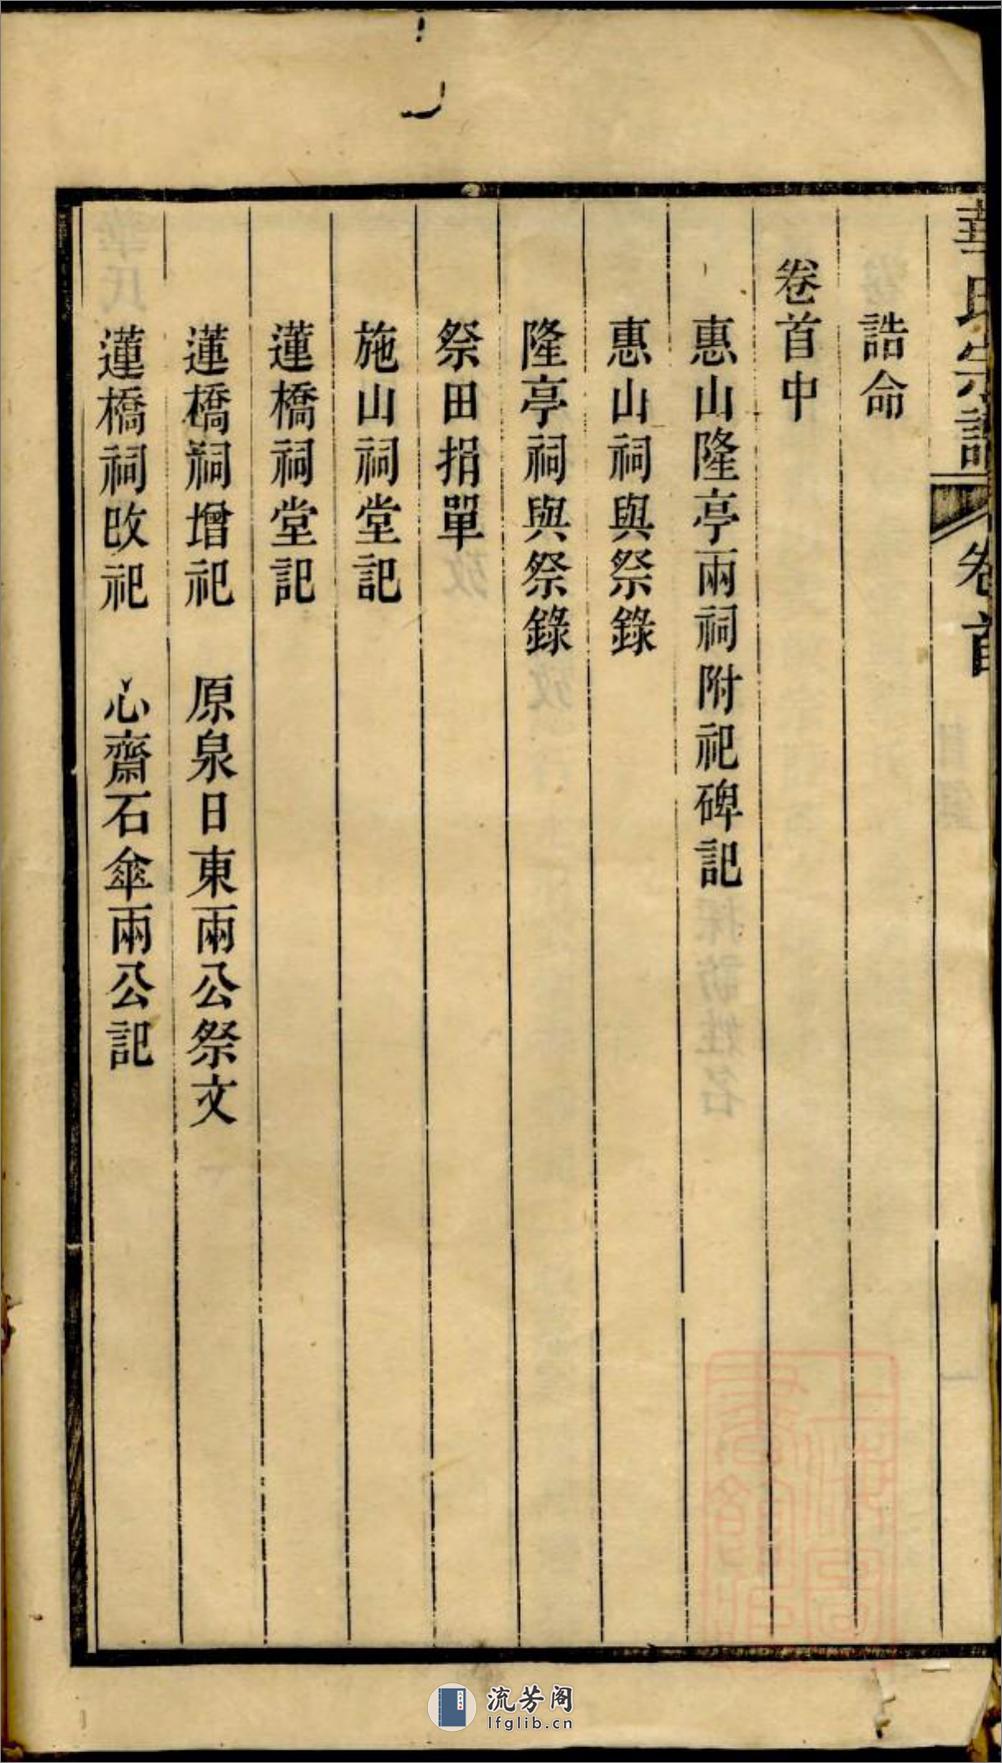 華氏宗譜 卷首
誥命
卷首中
惠山隆亭兩祠附祀碑記
惠山祠與祭錄
隆亭祠與祭錄
祭田捐單
施山祠堂記
蓮橋祠堂記
蓮橋祠增祀 原泉日東兩公祭文
蓮橋祠改祀 心齋石傘兩公記
流芳阁
lfglib.cn